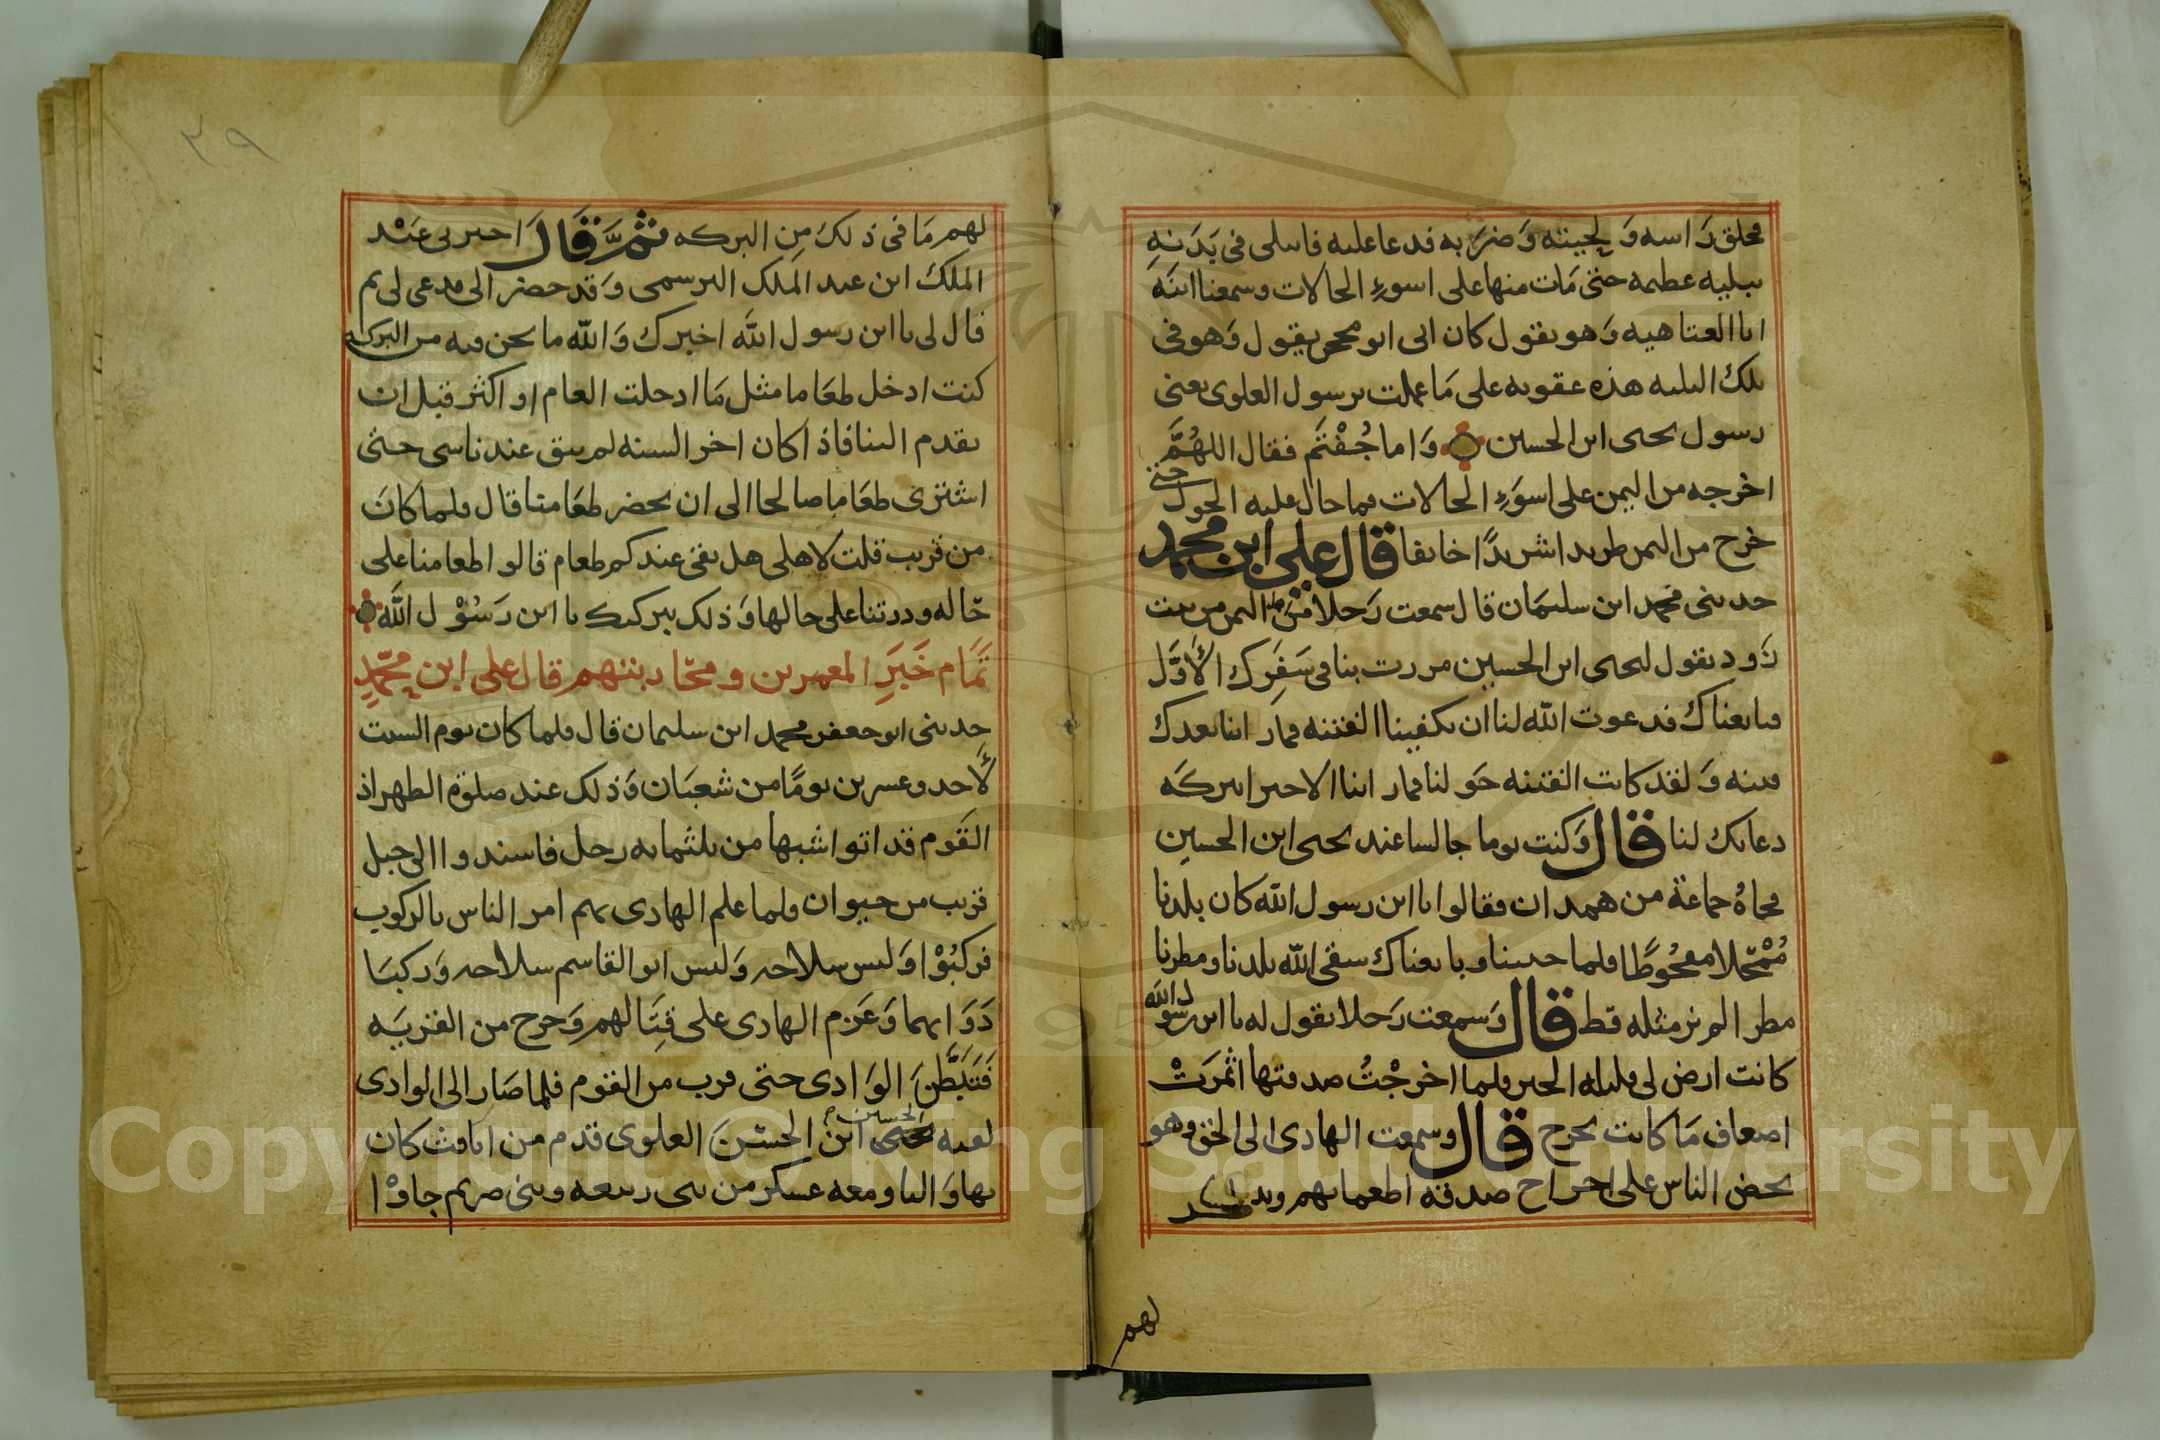 محلق راسه ولحيته وضربه فدعا عليه فابلى فى بدنه
ببليه عظيمه حتى مات منها على اسوء الحالات وسمعنا انه
ابا العتاهيه وهو يقول كان ابى ابو محمد يقول وهو فى
تلك البليه هذه عقوبه على ما عملت برسول العلوى يعنى
رسول يحيى ابن الحسين واما جفتم فقال اللهم
اخرجه من اليمن على اسوء الحالات فما حال عليه الحول حتى
خرج من اليمن طريدا شريدا خايفا قال على ابن محمد
حدثنى محمد ابن سليمان قال سمعت رجلا من اليمن من بيت
زود يقول ليحيى ابن الحسين مررت بنا فى سفرك الاول
فبايعناك فدعوت الله لنا ان يكفينا الفتنه فما راينا بعدك
فتنه ولقد كانت الفتنه حولنا فما راينا الا خيرا ببركه
دعائك لنا قال وكنت يوما جالسا عند يحيى ابن الحسين
فجاه جماعة من همدان فقالوا يا ابن رسول الله كان بلدنا
ممحلا مقحوطا فلما جيتنا وبايعناك سقى الله بلدنا ومطرنا
مطرا لم نر مثله قط قال وسمعت رجلا يقول له يا ابن رسول الله
كانت ارض لى قليله الخير فلما اخرجت صدقتها اثمرت
اضعاف ما كانت تخرج قال وسمعت الهادى الى الحق وهو
يحض الناس على اخراج صدقه اطعماتهم ويذكر
لهم
٣٩
لهم ما فى ذلك من البركه ثم قال اخبرنى عبد
الملك ابن عبد الملك البرسمى وقد حضر الى مدعى لى ثم
قال لى يا ابن رسول الله اخبرك والله ما نحن فيه من البركه
كنت ادخل طعاما مثل ما ادخلت العام او اكثر قبل ان
تقدم الينا فاذا كان اخر السنه لم يبق عندنا شى حتى
اشترى طعاما صالحا الى ان يحضر طعامنا قال فلما كان
من قريب قلت لاهلى هل بقى عندكم طعام قالوا طعامنا على
حاله وددتنا على حالها وذلك ببركتك يا ابن رسول الله
تمام خبر المعمرين ومحاربتهم قال على ابن محمد
حدثنى ابو جعفر محمد ابن سليمان قال فلما كان يوم السبت
لاحد وعشرين يوما من شعبان وذلك عند صلوة الظهر اذ
القوم قد اتوا شبها من ثلثمايه رجل فاسندوا الى جبل
قريب من خيوان فلما علم الهادى بهم امر الناس بالركوب
فركبوا ولبس سلاحه ولبس ابو القاسم سلاحه وركبا
دوابهما وعزم الهادى على قتالهم وخرج من القريه
فتبطن الوادى حتى قرب من القوم فلما صار الى الوادى
لقيه الحسين ابن الحسن العلوى قدم من اثافت كان
بها واليا ومعه عسكر من بنى ربيعه وبنى صريم جاوا